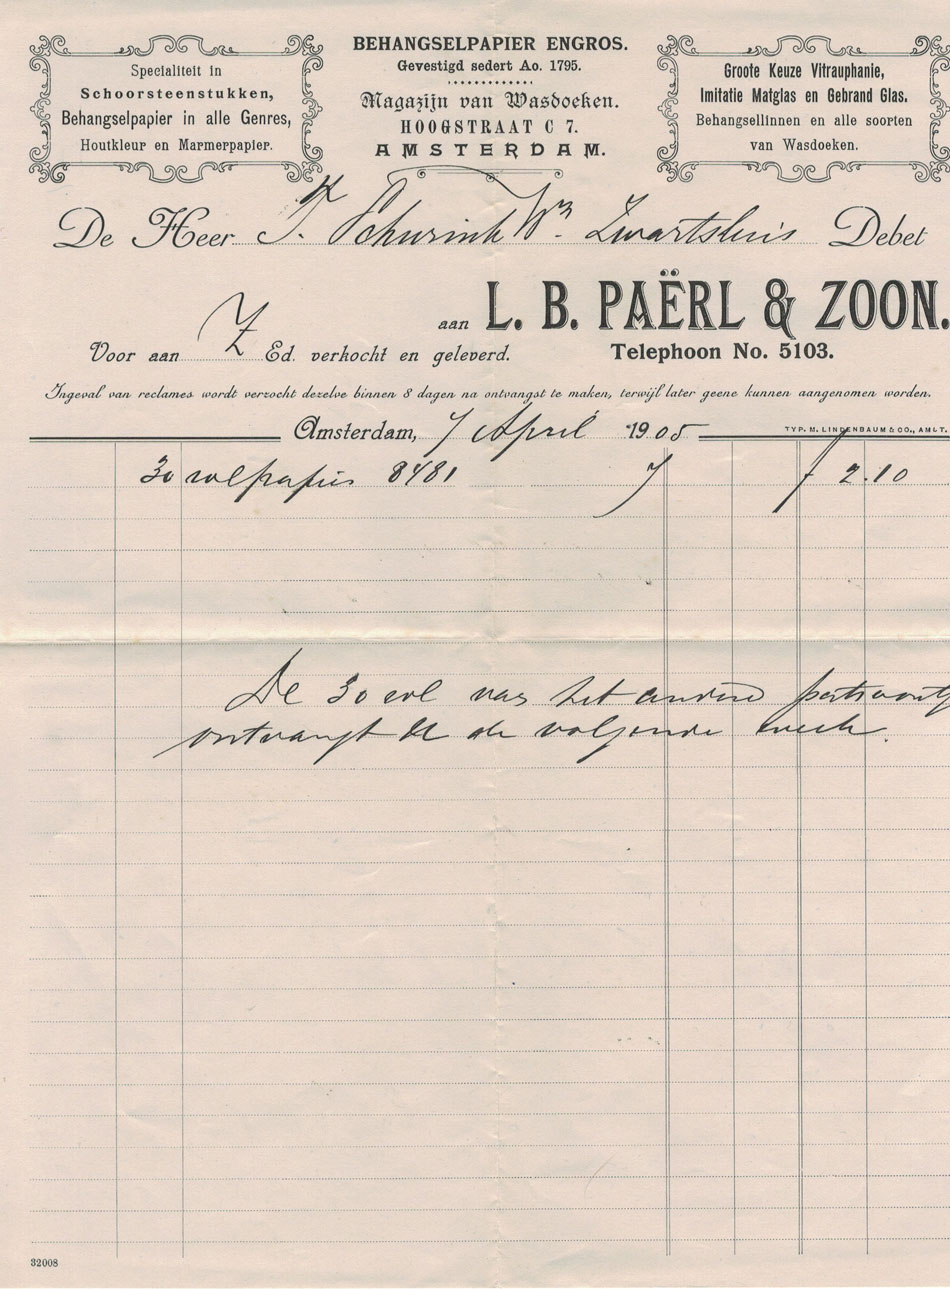 Specialiteit in
Schoorsteenstukken,
Behangselpapier in alle Genres,
Houtkleur en Marmerpapier.
BEHANGSELPAPIER ENGROS.
Gevestigd sedert Ao. 1795.
Magazijn van Wasdoeken.
HOOGSTRAAT C 7.
AMSTERDAM.
Groote Keuze Vitrauphanie,
Imitatie Matglas en Gebrand Glas.
Behangsellinnen en alle soorten
van Wasdoeken.
De Heer Schurink Wz. Zwartsluis Debet
aan L. B. PAËRL & ZOON.
Voor aan Z Ed. verkocht en geleverd.
Telephoon No. 5103.
Ingeval van reclames wordt verzocht dezelve binnen 8 dagen na ontvangst te maken, terwijl later geene kunnen aangenomen worden.
Amsterdam, 7 April 1905
TYP. M. LINDENBAUM & CO., AMST.
30 rol papier 8481 7 f 2.10
De 30 rol van het andere
ontvangt U de volgende week.
32008